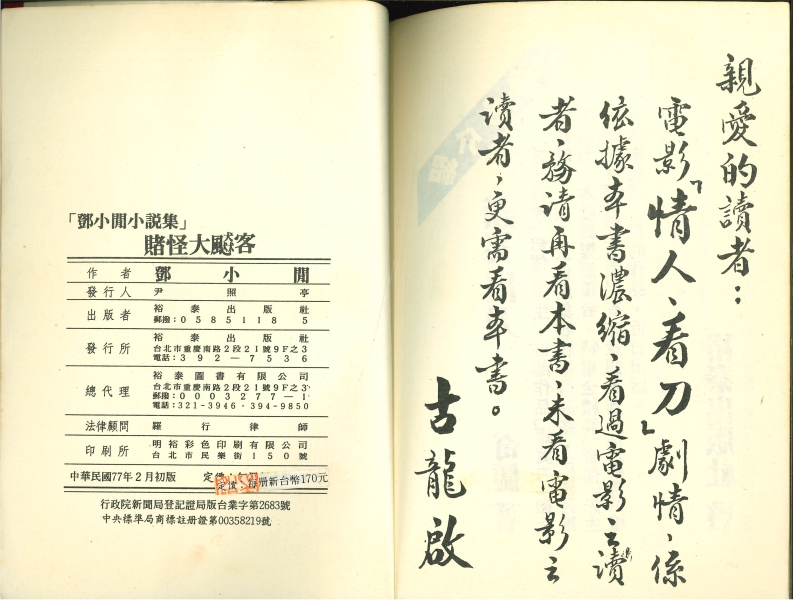 「鄧小閒小說集」
賭怪大颷客
作者 鄧小閒
發行人 尹照亭
出版者 裕泰出版社
郵撥：05851185
發行所 裕泰出版社
台北市重慶南路2段21號9F之3
電話：392—7536
總代理 裕泰圖書有限公司
台北市重慶南路2段21號9F之3
郵撥：0003277—1
電話：321-3946・394-9850
法律顧問 羅行律師
印刷所 明裕彩色印刷有限公司
台北市民樂街150號
中華民國77年2月初版
定價：每冊新台幣170元
行政院新聞局登記證局版台業字第2683號
中央標準局商標註冊證第00358219號
親愛的讀者：
電影『情人、看刀』劇情，係
依據本書濃縮，看過電影之讀
者，務請再看本書，未看電影之
讀者，更需看本書。
古龍啟
介紹